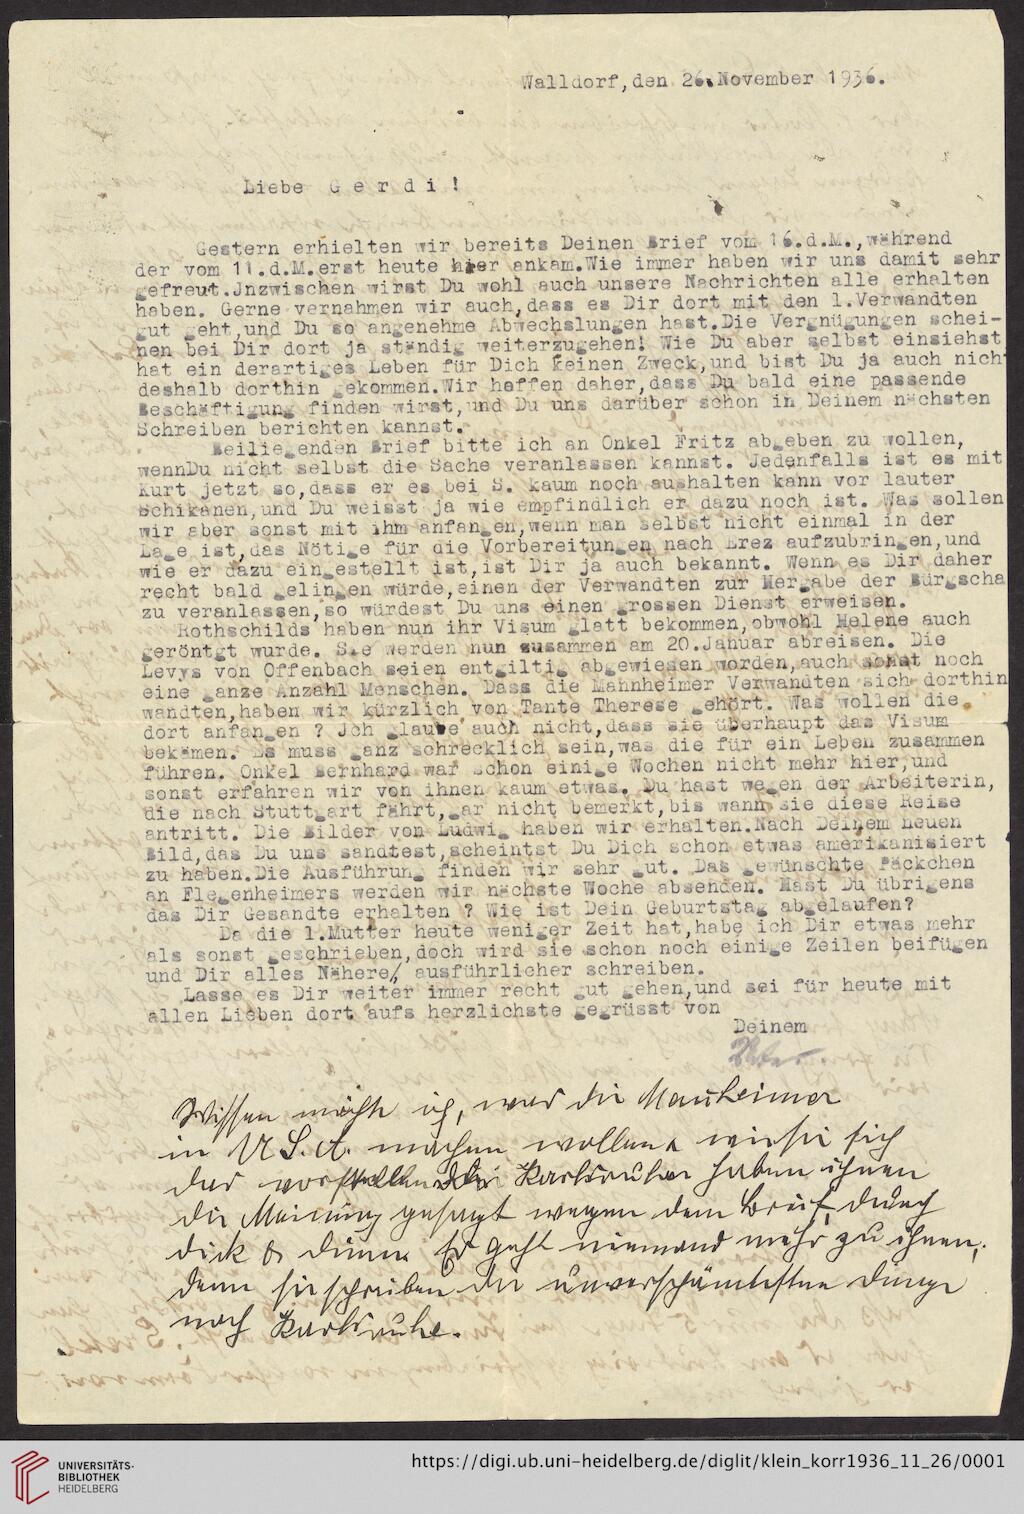 Walldorf,den 26.November 1936.
Liebe G e r d i !
Gestern erhielten wir bereits Deinen Brief vom 16.d.M.,während
der vom 11.d.M.erst heute hier ankam.Wie immer haben wir uns damit sehr
gefreut.Jnzwischen wirst Du wohl auch unsere Nachrichten alle erhalten
haben. Gerne vernahmen wir auch,dass es Dir dort mit den l.Verwandten
gut geht,und Du so angenehme Abwechslungen hast.Die Vergnügungen schei-
nen bei Dir dort ja ständig weiterzugehen! Wie Du aber selbst einsiehst
hat ein derartiges Leben für Dich keinen Zweck,und bist Du ja auch nich
deshalb dorthin gekommen.Wir hoffen daher,dass Du bald eine passende
Beschäftigung finden wirst,und Du uns darüber schon in Deinem nächsten
Schreiben berichten kannst.
Beiliegenden Brief bitte ich an Onkel Fritz abgeben zu wollen,
wennDu nicht selbst die Sache veranlassen kannst. Jedenfalls ist es mit
Kurt jetzt so,dass er es bei S. kaum noch aushalten kann vor lauter
Schikanen,und Du weisst ja wie empfindlich er dazu noch ist. Was sollen
wir aber sonst mit ihm anfangen,wenn man selbst nicht einmal in der
Lage ist,das Nötige für die Vorbereitungen nach Erez aufzubringen,und
wie er dazu eingestellt ist,ist Dir ja auch bekannt. Wenn es Dir daher
recht bald gelingen würde,einen der Verwandten zur Hergabe der Bürgscha
zu veranlassen,so würdest Du uns einen grossen Dienst erweisen.
Rothschilds haben nun ihr Visum glatt bekommen,obwohl Helene auch
geröntgt wurde. Sie werden nun zusammen am 20.Januar abreisen. Die
Levys von Offenbach seien entgiltig abgewiesen worden,auch sonst noch
eine ganze Anzahl Menschen. Dass die Mannheimer Verwandten sich dorthin
wandten,haben wir kürzlich von Tante Therese gehört. Was wollen die
dort anfangen ? Jch glaube auch nicht,dass sie überhaupt das Visum
bekämen. Es muss ganz schrecklich sein,was die für ein Leben zusammen
führen. Onkel Bernhard war schon einige Wochen nicht mehr hier,und
sonst erfahren wir von ihnen kaum etwas. Du hast wegen der Arbeiterin,
die nach Stuttgart fährt,gar nicht bemerkt,bis wann sie diese Reise
antritt. Die Bilder von Ludwig haben wir erhalten.Nach Deinem neuen
Bild,das Du uns sandtest,scheintst Du Dich schon etwas amerikanisiert
zu haben.Die Ausführung finden wir sehr gut. Das gewünschte Päckchen
an Flegenheimers werden wir nächste Woche absenden. Hast Du übrigens
das Dir Gesandte erhalten ? Wie ist Dein Geburtstag abgelaufen?
Da die l.Mutter heute weniger Zeit hat,habe ich Dir etwas mehr
als sonst geschrieben,doch wird sie schon noch einige Zeilen beifügen
und Dir alles Nähere, ausführlicher schreiben.
Lasse es Dir weiter immer recht gut gehen,und sei für heute mit
allen Lieben dort aufs herzlichste gegrüsst von
Deinem
Vater.
Wissen möchte ich, was die Mannheimer
in U.S.A. machen wollen, wie sie sich
das vorstellen die Karlsruher haben ihnen
die Meinung gesagt wegen dem Brief, durch
dick & dünn. Es geht niemand mehr zu ihnen,
denn sie schreiben die unverschämtesten Dinge
nach Karlsruhe.
UNIVERSITÄTS-
BIBLIOTHEK
HEIDELBERG
https://digi.ub.uni-heidelberg.de/diglit/klein_korr1936_11_26/0001